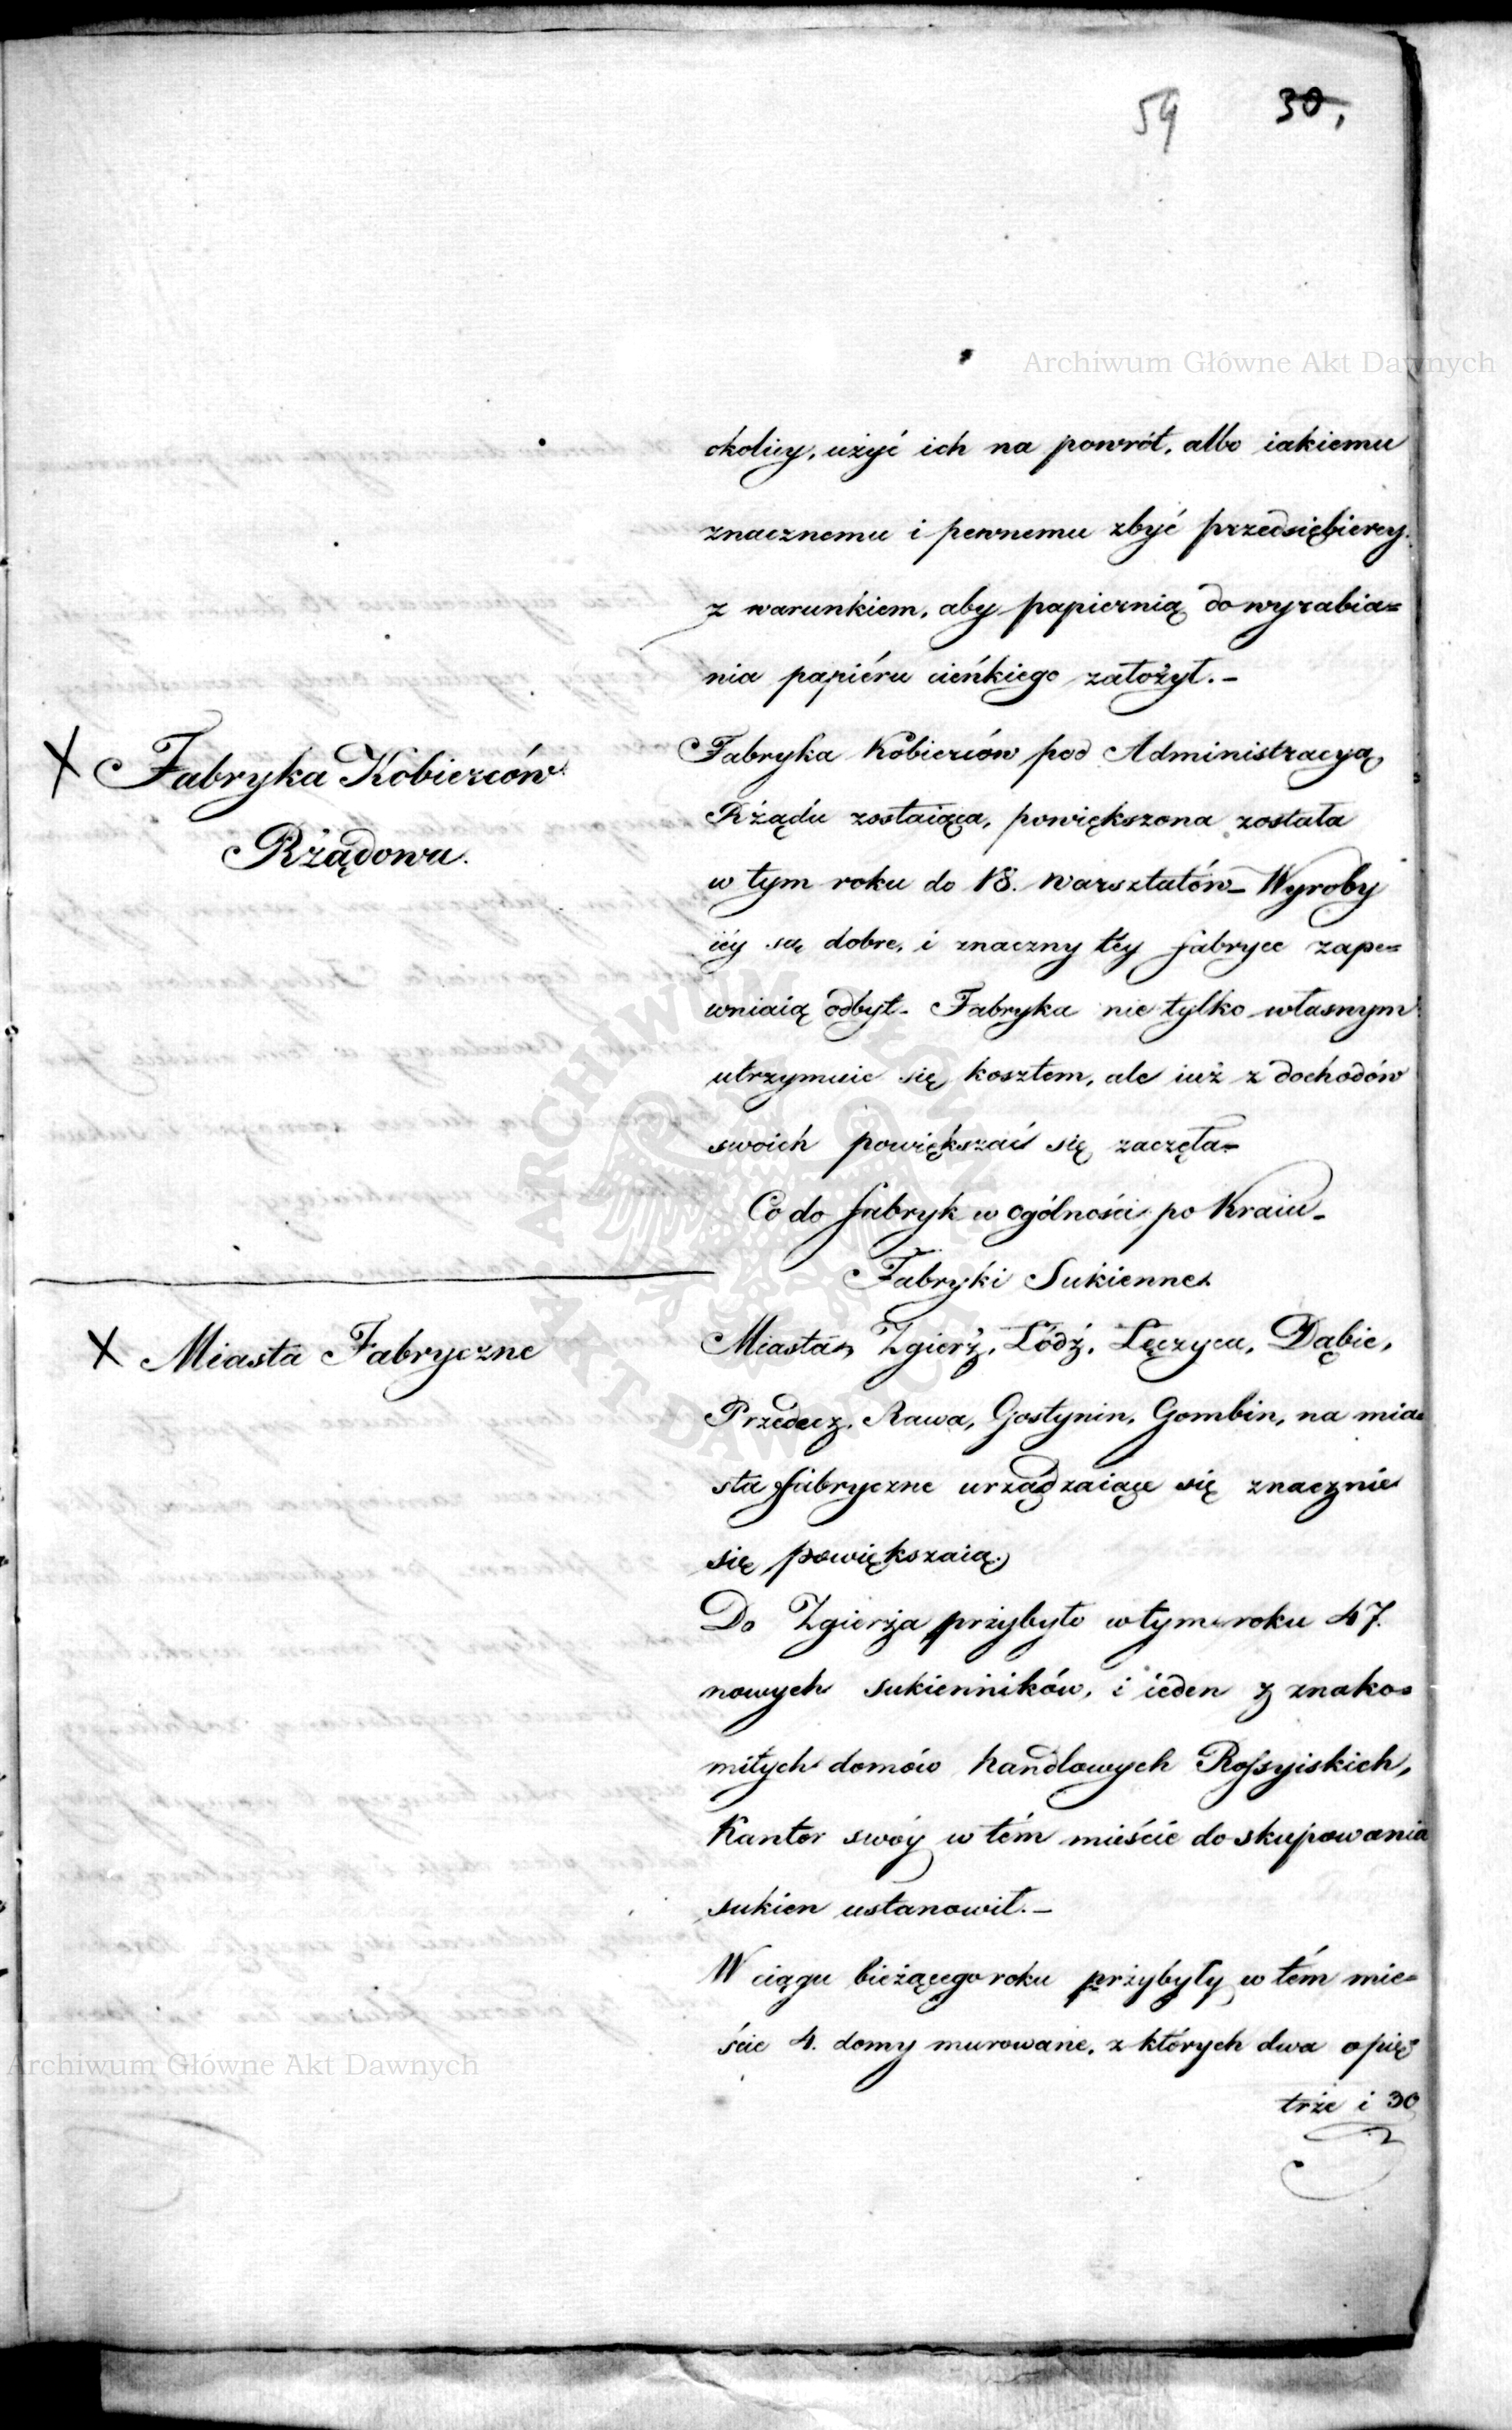 59 30,
Archiwum Główne Akt Dawnych
okolicy, użyć ich na powrót, albo iakiemu
znacznemu i pewnemu zbyć przedsiębiercy,
z warunkiem, aby papiernią do wyrabia=
nia papiéru cieńkiego założył.–
X Fabryka Kobierców
Rządowa.
Fabryka Kobierców pod Administracyą
Rządu zostaiąca, powiększona została
w tym roku do 18. warsztatów– Wyroby
iéy są dobre, i znaczny téy fabryce zape=
wniaią odbyt– Fabryka nie tylko własnym
utrzymuie się kosztem, ale iuż z dochodów
swoich powiększać się zaczęła–
Co do fabryk w ogólności po Kraiu–
Fabryki Sukienne
X Miasta Fabryczne
Miasta, Zgierz, Łódź, Łęczyca, Dąbie,
Przedecz, Rawa, Gostynin, Gombin, na mia=
sta fabryczne urządzaiące się znacznie
się powiększaią.
Do Zgierza przybyło w tym roku 47.
nowych sukienników, i ieden z znako=
mitych domów handlowych Rossyiskich,
Kantor swóy w tém mieście do skupowania
sukien ustanowił.–
W ciągu bieżącego roku przybyły w tém mie=
ście 4. domy murowane, z których dwa o pię
trze i 30
Archiwum Główne Akt Dawnych
ARCHIWUM GŁÓWNE AKT DAWNYCH